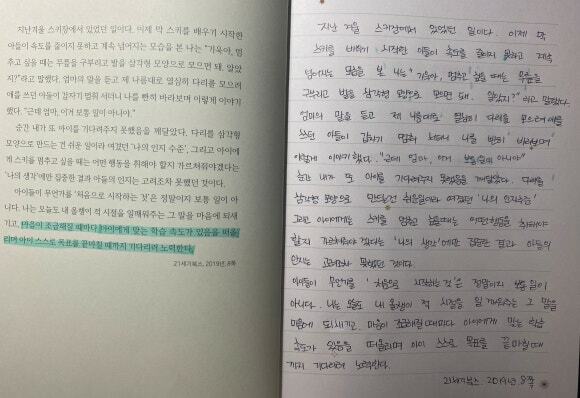 지난겨울 스키장에서 있었던 일이다. 이제 막 스키를 배우기 시작한
아들이 속도를 줄이지 못하고 계속 넘어지는 모습을 본 나는 "기욱아, 멈
추고 싶을 때는 무릎을 구부리고 발을 삼각형 모양으로 모으면 돼. 알았
지?"라고 말했다. 엄마의 말을 듣고 제 나름대로 열심히 다리를 모으려
애를 쓰던 아들이 갑자기 멈춰 서더니 나를 빤히 바라보며 이렇게 이야기
했다. "근데 엄마, 이거 보통 일이 아니야."
순간 내가 또 아이를 기다려주지 못했음을 깨달았다. 다리를 삼각형
모양으로 만드는 건 쉬운 일이라 여겼던 '나의 인지 수준', 그리고 아이에
게 스키를 멈추고 싶을 때는 어떤 행동을 취해야 할지 가르쳐야겠다는
'나의 생각'에만 집중한 결과 아들의 인지는 고려조차 못했던 것이다.
아이들이 무언가를 '처음으로 시작하는 것'은 정말이지 보통 일이 아
니다. 나는 오늘도 내 올챙이 적 시절을 일깨워주는 그 말을 마음에 되새
기고, 마음이 조급해질 때마다 아이에게 맞는 학습 속도가 있음을 떠올
리며 아이 스스로 목표를 끝마칠 때까지 기다리려 노력한다.
21세기북스, 2019년, 8쪽
지난 겨울 스키장에서 있었던 일이다. 이제 막
스키를 배우기 시작한 아들이 속도를 줄이지 못하고 계속
넘어지는 모습을 본 나는 "기욱아, 멈추고 싶을 때는 무릎을
구부리고 발을 삼각형 모양으로 모으면 돼. 알았지?"라고 말했다.
엄마의 말을 듣고 제 나름대로 열심히 다리를 모으려 애를
쓰던 아들이 갑자기 멈춰 서더니 나를 빤히 바라보며
이렇게 이야기 했다. "근데 엄마, 이거 보통일이 아니야"
순간 내가 또 아이를 기다려주지 못했음을 깨달았다. 다리를
삼각형 모양으로 만드는건 쉬운일이라 여겼던 '나의 인지수준'
그리고 아이에게는 스키를 멈추고 싶을때는 어떤행동을 취해야
할지 가르쳐야겠다는 '나의 생각'에만 집중한 결과 아들의
인지는 고려조차 못했던 것이다.
아이들이 무언가를 '처음으로 시작하는 것'은 정말이지 보통 일이
아니다. 나는 오늘도 내 올챙이 적 시절을 일깨워주는 그 말을
마음에 되새기고, 마음이 조급해질 때마다 아이에게 맞는 학습
속도가 있음을 떠올리며 아이 스스로 목표를 끝마칠 때
까지 기다리려 노력한다.
21세기북스, 2019년, 8쪽